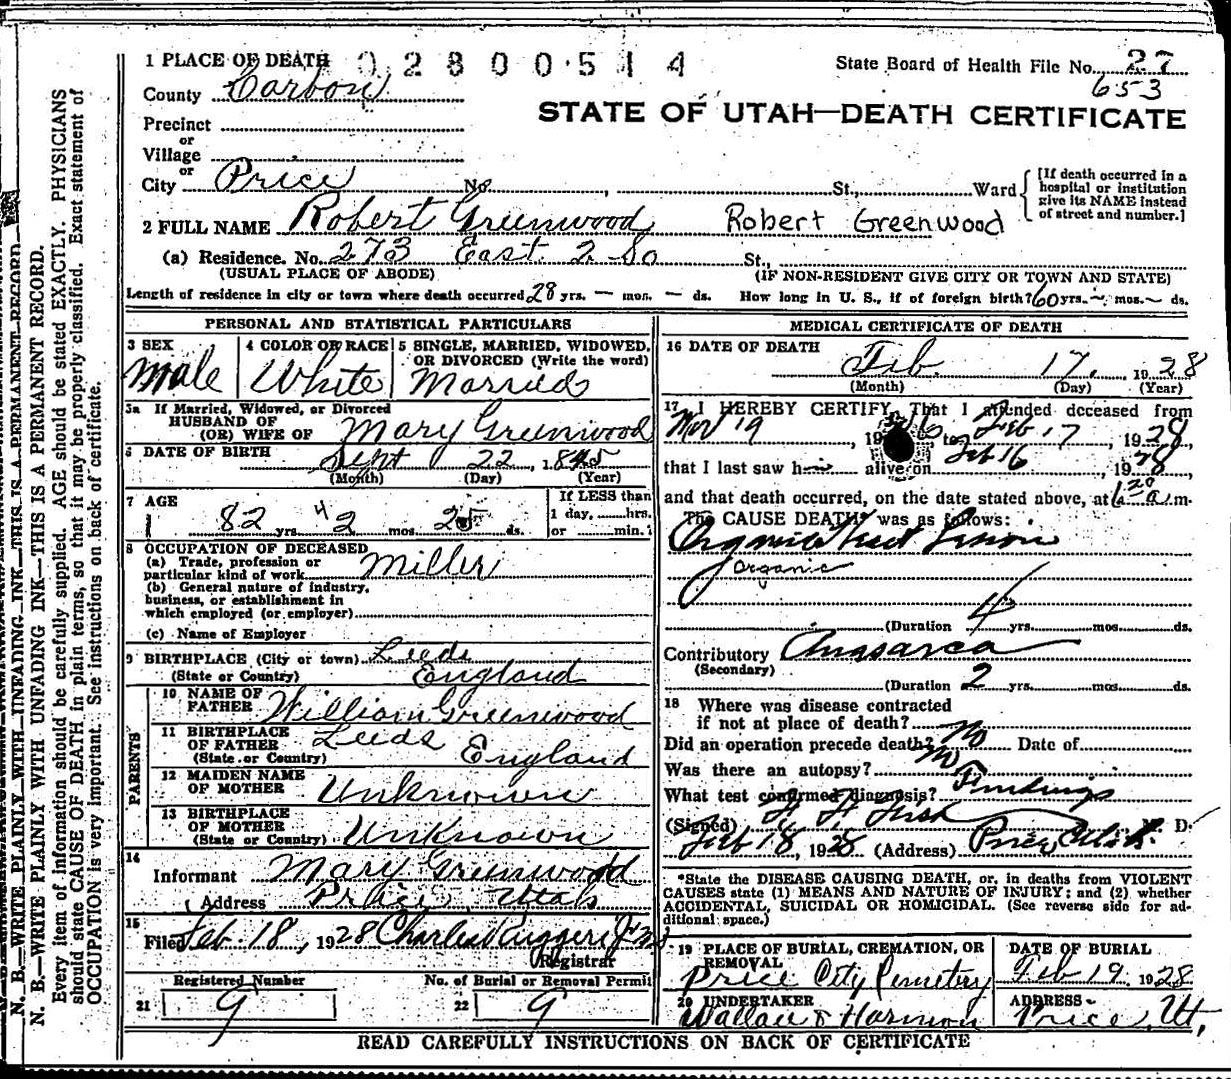 1 PLACE OF DEATH 02800514
State Board of Health File No. 27
653
County Carbon
STATE OF UTAH—DEATH CERTIFICATE
Precinct
or
Village
or
City Price No. , St., Ward
[If death occurred in a hospital or institution give its NAME instead of street and number.]
2 FULL NAME Robert Greenwood Robert Greenwood
(a) Residence. No. 273 East 2 So St.,
(USUAL PLACE OF ABODE) (IF NON-RESIDENT GIVE CITY OR TOWN AND STATE)
Length of residence in city or town where death occurred 28 yrs. — mos. — ds. How long in U. S., if of foreign birth? 60 yrs. ~ mos. ~ ds.
PERSONAL AND STATISTICAL PARTICULARS
3 SEX
Male
4 COLOR OR RACE
White
5 SINGLE, MARRIED, WIDOWED, OR DIVORCED (Write the word)
Married
3a If Married, Widowed, or Divorced
HUSBAND OF
(OR) WIFE OF Mary Greenwood
6 DATE OF BIRTH Sept 22, 1845
(Month) (Day) (Year)
7 AGE
82 yrs. 4 mos. 25 ds.
If LESS than
1 day, hrs.
or min.?
8 OCCUPATION OF DECEASED
(a) Trade, profession or
particular kind of work Miller
(b) General nature of industry,
business, or establishment in
which employed (or employer)
(c) Name of Employer
9 BIRTHPLACE (City or town) Leeds
(State or Country) England
PARENTS
10 NAME OF
FATHER William Greenwood
11 BIRTHPLACE
OF FATHER Leeds
(State or Country) England
12 MAIDEN NAME
OF MOTHER Unknown
13 BIRTHPLACE
OF MOTHER
(State or Country) Unknown
14
Informant Mary Greenwood
Address Price, Utah
15
Filed Feb. 18, 1928 Charles Ruggeri Jr
Registrar
Registered Number
21 9
No. of Burial or Removal Permit
22 9
MEDICAL CERTIFICATE OF DEATH
16 DATE OF DEATH
Feb. 17. 1928
(Month) (Day) (Year)
17 I HEREBY CERTIFY, That I attended deceased from
Nov 19, 1926 to Feb 17, 1928
that I last saw him alive on Feb 16, 1928
and that death occurred, on the date stated above, at 1:20 a.m.
The CAUSE DEATH* was as follows:
Organic Heart Lesion
organic
(Duration 4 yrs. mos. ds.
Contributory Anasarca
(Secondary)
(Duration 2 yrs. mos. ds.
18 Where was disease contracted
if not at place of death?
Did an operation precede death? No Date of
Was there an autopsy? No
What test confirmed diagnosis? Findings
(Signed) M. D.
Feb 18, 1928 (Address) Price Utah.
*State the DISEASE CAUSING DEATH, or, in deaths from VIOLENT
CAUSES state (1) MEANS AND NATURE OF INJURY; and (2) whether
ACCIDENTAL, SUICIDAL OR HOMICIDAL. (See reverse side for ad-
ditional space.)
19 PLACE OF BURIAL, CREMATION, OR
REMOVAL
Price City Cemetery
DATE OF BURIAL
Feb 19. 1928
20 UNDERTAKER
Wallace & Harmon
ADDRESS
Price, Ut,
READ CAREFULLY INSTRUCTIONS ON BACK OF CERTIFICATE
N. B.—WRITE PLAINLY WITH UNFADING INK—THIS IS A PERMANENT RECORD.
N. B.—WRITE PLAINLY WITH UNFADING INK—THIS IS A PERMANENT RECORD.
Every item of information should be carefully supplied. AGE should be stated EXACTLY. PHYSICIANS
should state CAUSE OF DEATH in plain terms, so that it may be properly classified. Exact statement of
OCCUPATION is very important. See instructions on back of certificate.